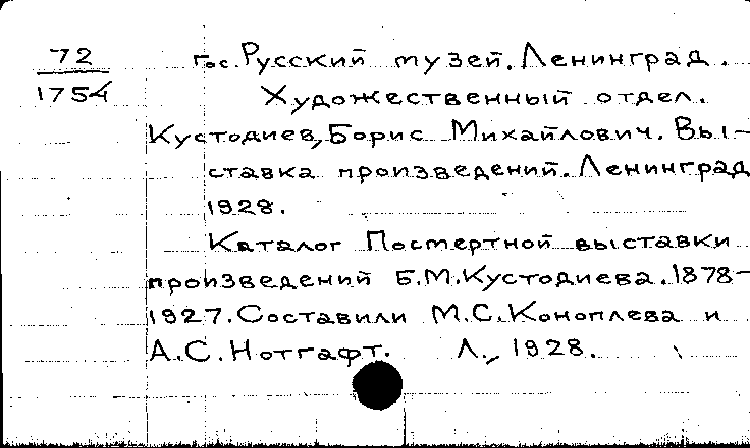 72
1754
Гос. Русский музей. Ленинград.
Художественный отдел.
Кустодиев, Борис Михайлович. Вы-
ставка произведений. Ленинград
1928.
Каталог Посмертной выставки
произведений Б.М.Кустодиева. 1878-
1927. Составили М.С.Коноплева и
А.С.Нотгафт. Л., 1928.